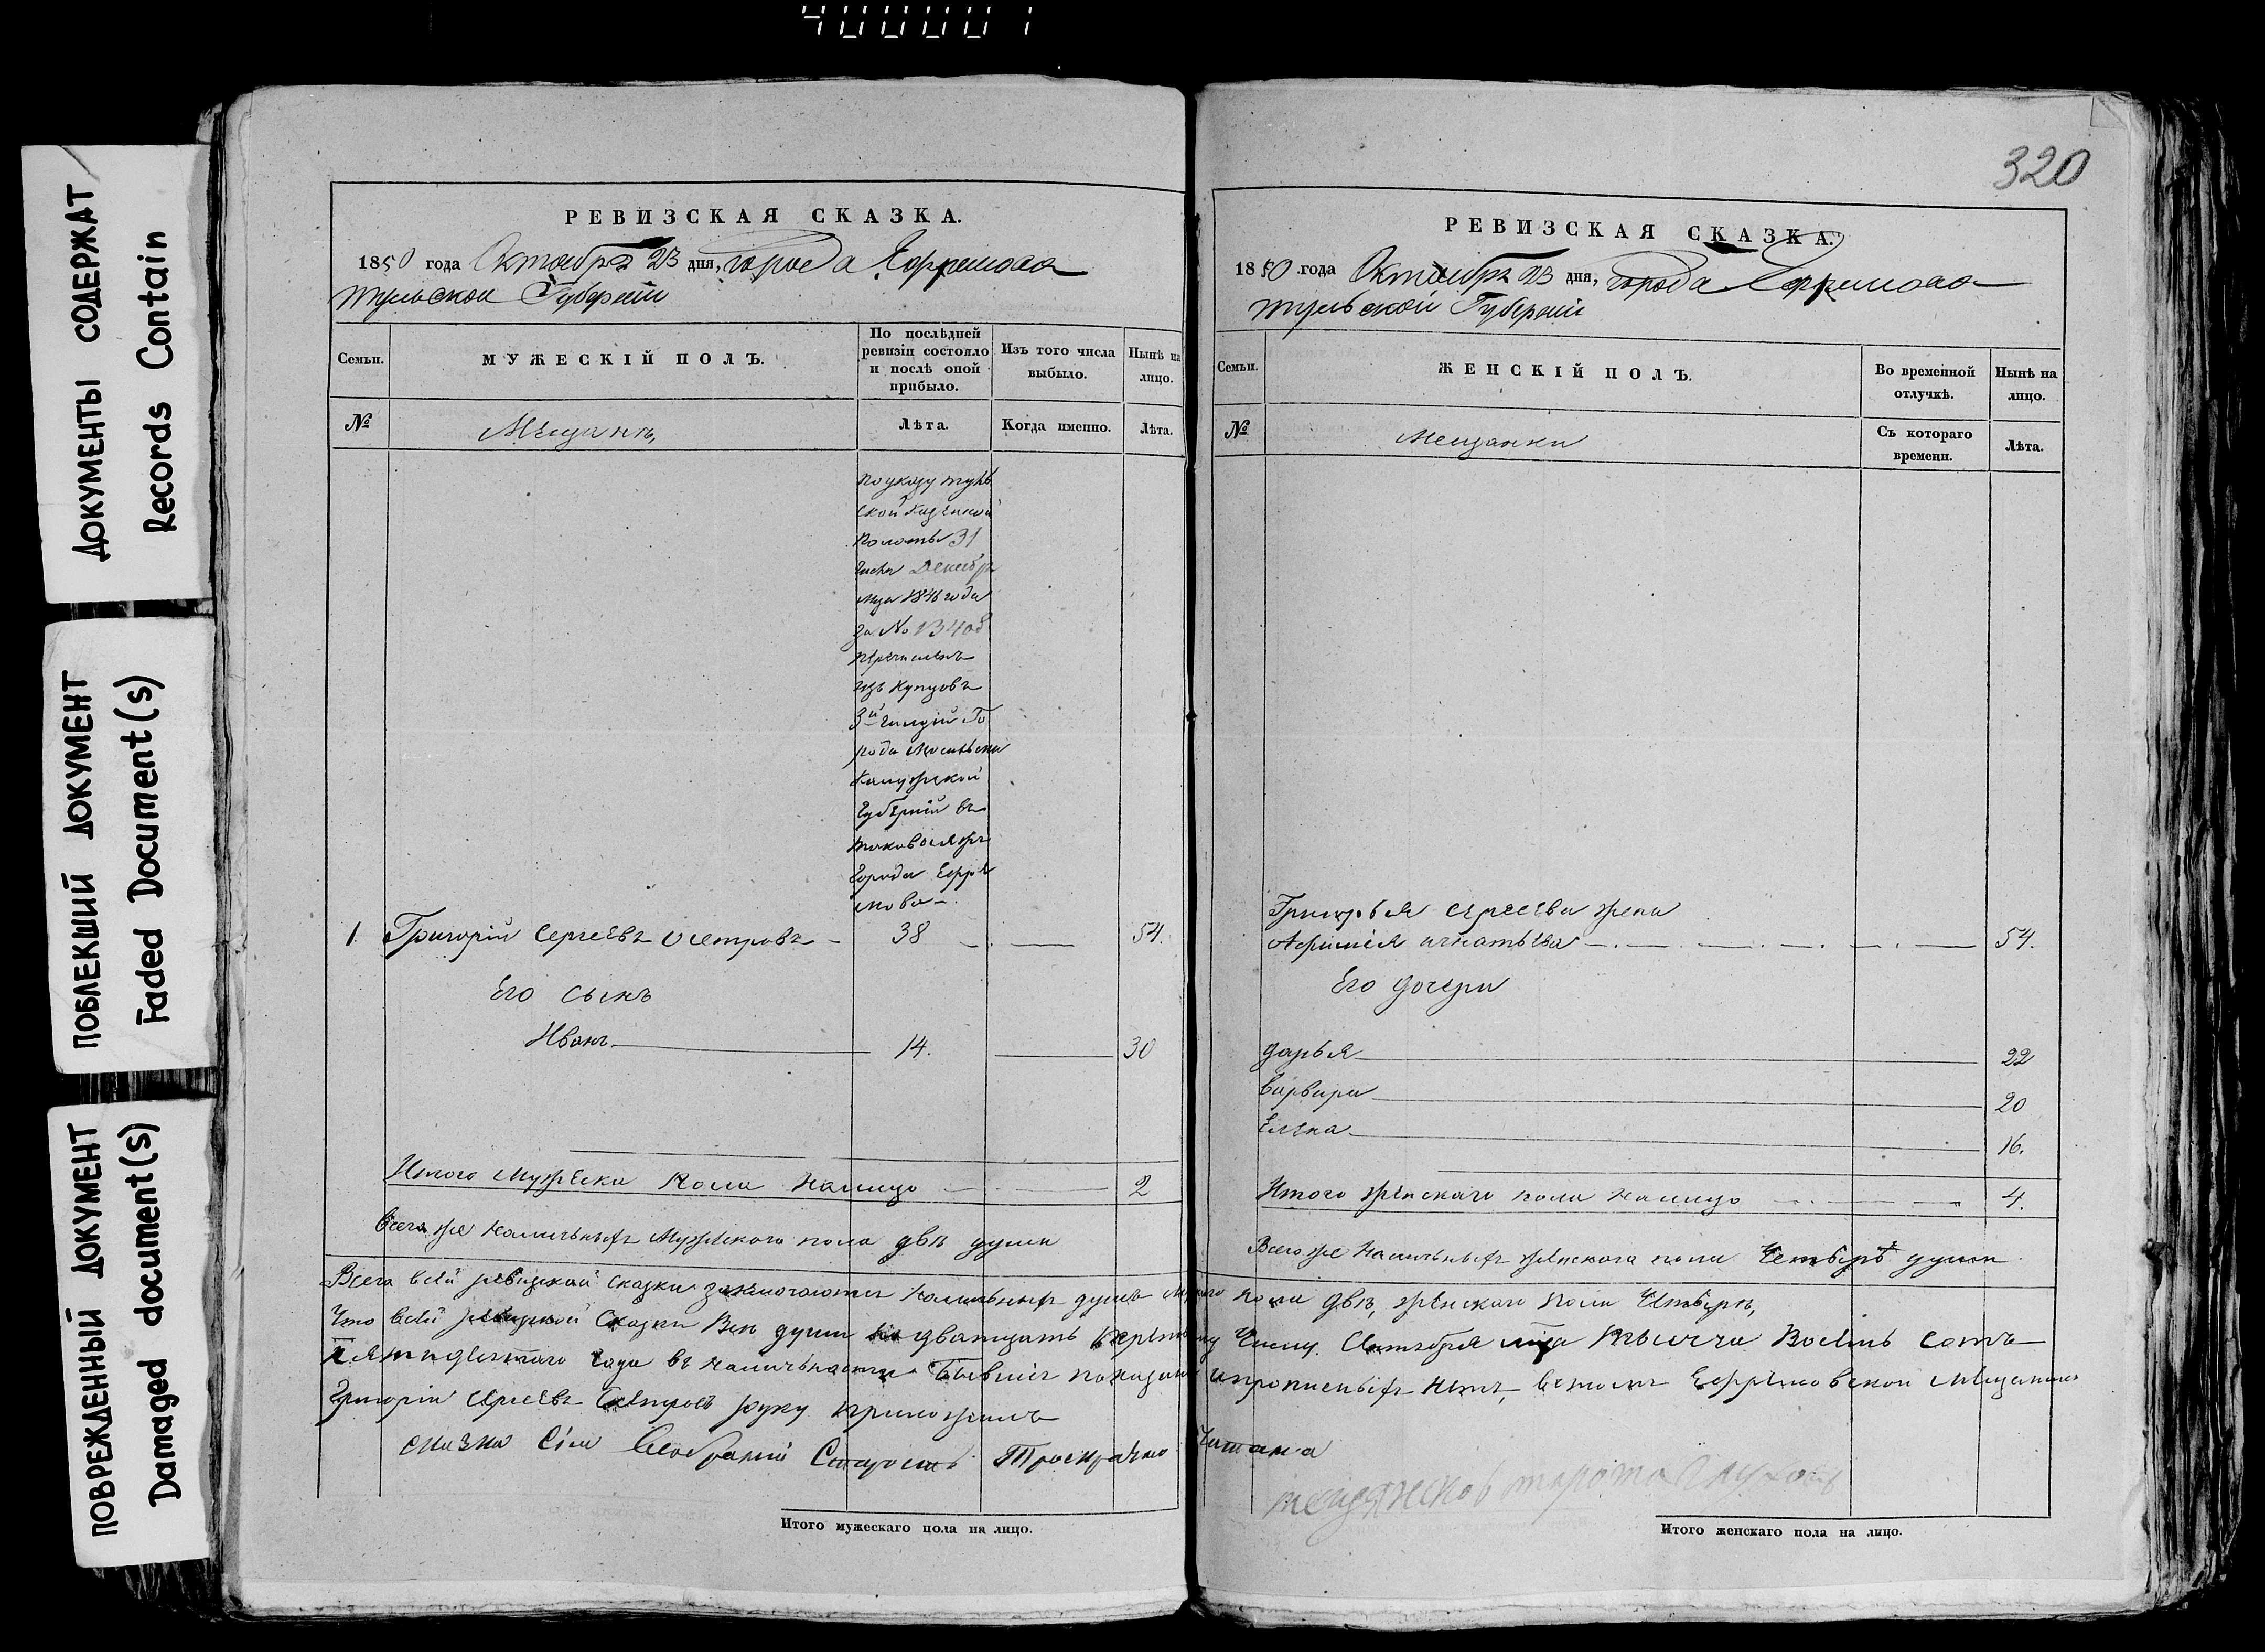 4000001
ДОКУМЕНТЫ СОДЕРЖАТ
Records Contain
ПОБЛЕКШИЙ ДОКУМЕНТ
Faded Document(s)
ПОВРЕЖДЕННЫЙ ДОКУМЕНТ
Damaged document(s)
РЕВИЗСКАЯ СКАЗКА.
1850 года Октября 23 дня, города Ефремова
Тульской Губерніи
Семьи.
МУЖЕСКІЙ ПОЛЪ.
По послѣдней
ревизіи состояло
и послѣ оной
прибыло.
Изъ того числа
выбыло.
Нынѣ на
лицо.
№
Мещанъ
Лѣта.
Когда именно.
Лѣта.
По указу туль
ской Казенной
Полаты 31
числа Декабря
мца 1846 года
за No 13408
перечисленъ
изъ купцовъ
3й гилдіи Го
рода
Калужской
Губерніи въ
таковыяжъ
Города Ефре
мова
1 Григорій Сергеевъ Осетровъ 38 54.
Его сынъ
Иванъ 14. 30
Итого Мужеска пола налицо 2
Всего же наличныхъ Мужескаго пола двѣ души
320
РЕВИЗСКАЯ СКАЗКА.
1850 года Октября 23 дня, города Ефремова
тульской Губерніи
Семьи.
ЖЕНСКІЙ ПОЛЪ.
Во временной
отлучкѣ.
Нынѣ на
лицо.
№
Мещанки
Съ котораго
времени.
Лѣта.
Григорья Сергеева жена
Афимія игнатьева 54.
Его дочери
дарья 22
Варвара 20
Елена 16.
Итого женскаго пола налицо 4.
Всего же Наличныхъ женскаго пола Четыре души
Всего в сей ревизской сказки заключаются Наличныхъ душъ пола двѣ, женскаго пола Четыре,
Что в сей ревизской Сказки Все души дватцать числу Октября мца Тысяча Восемь сотъ
пятидесятаго года въ наличьности Бывшие показаны и прописныхъ нетъ, в томъ Ефремовской мещанинъ
Григорій Сергеевъ Осетровъ руку приложилъ
сказка Сія Старостѣ Читана
Итого мужескаго пола на лицо.
Итого женскаго пола на лицо.